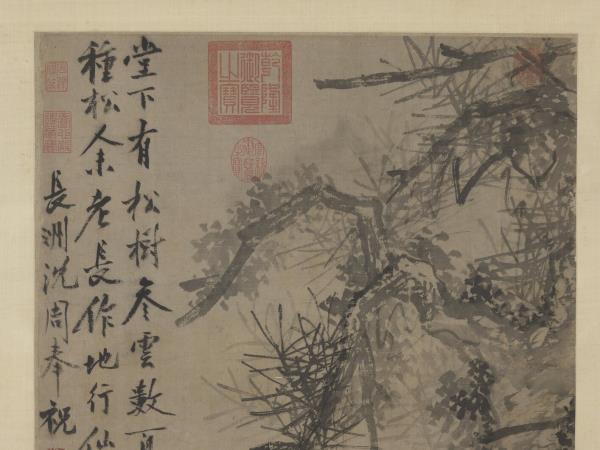 堂下有松樹參雲數百
種松人未老長作地行仙
長洲沈周奉祝
乾隆御覽之寶